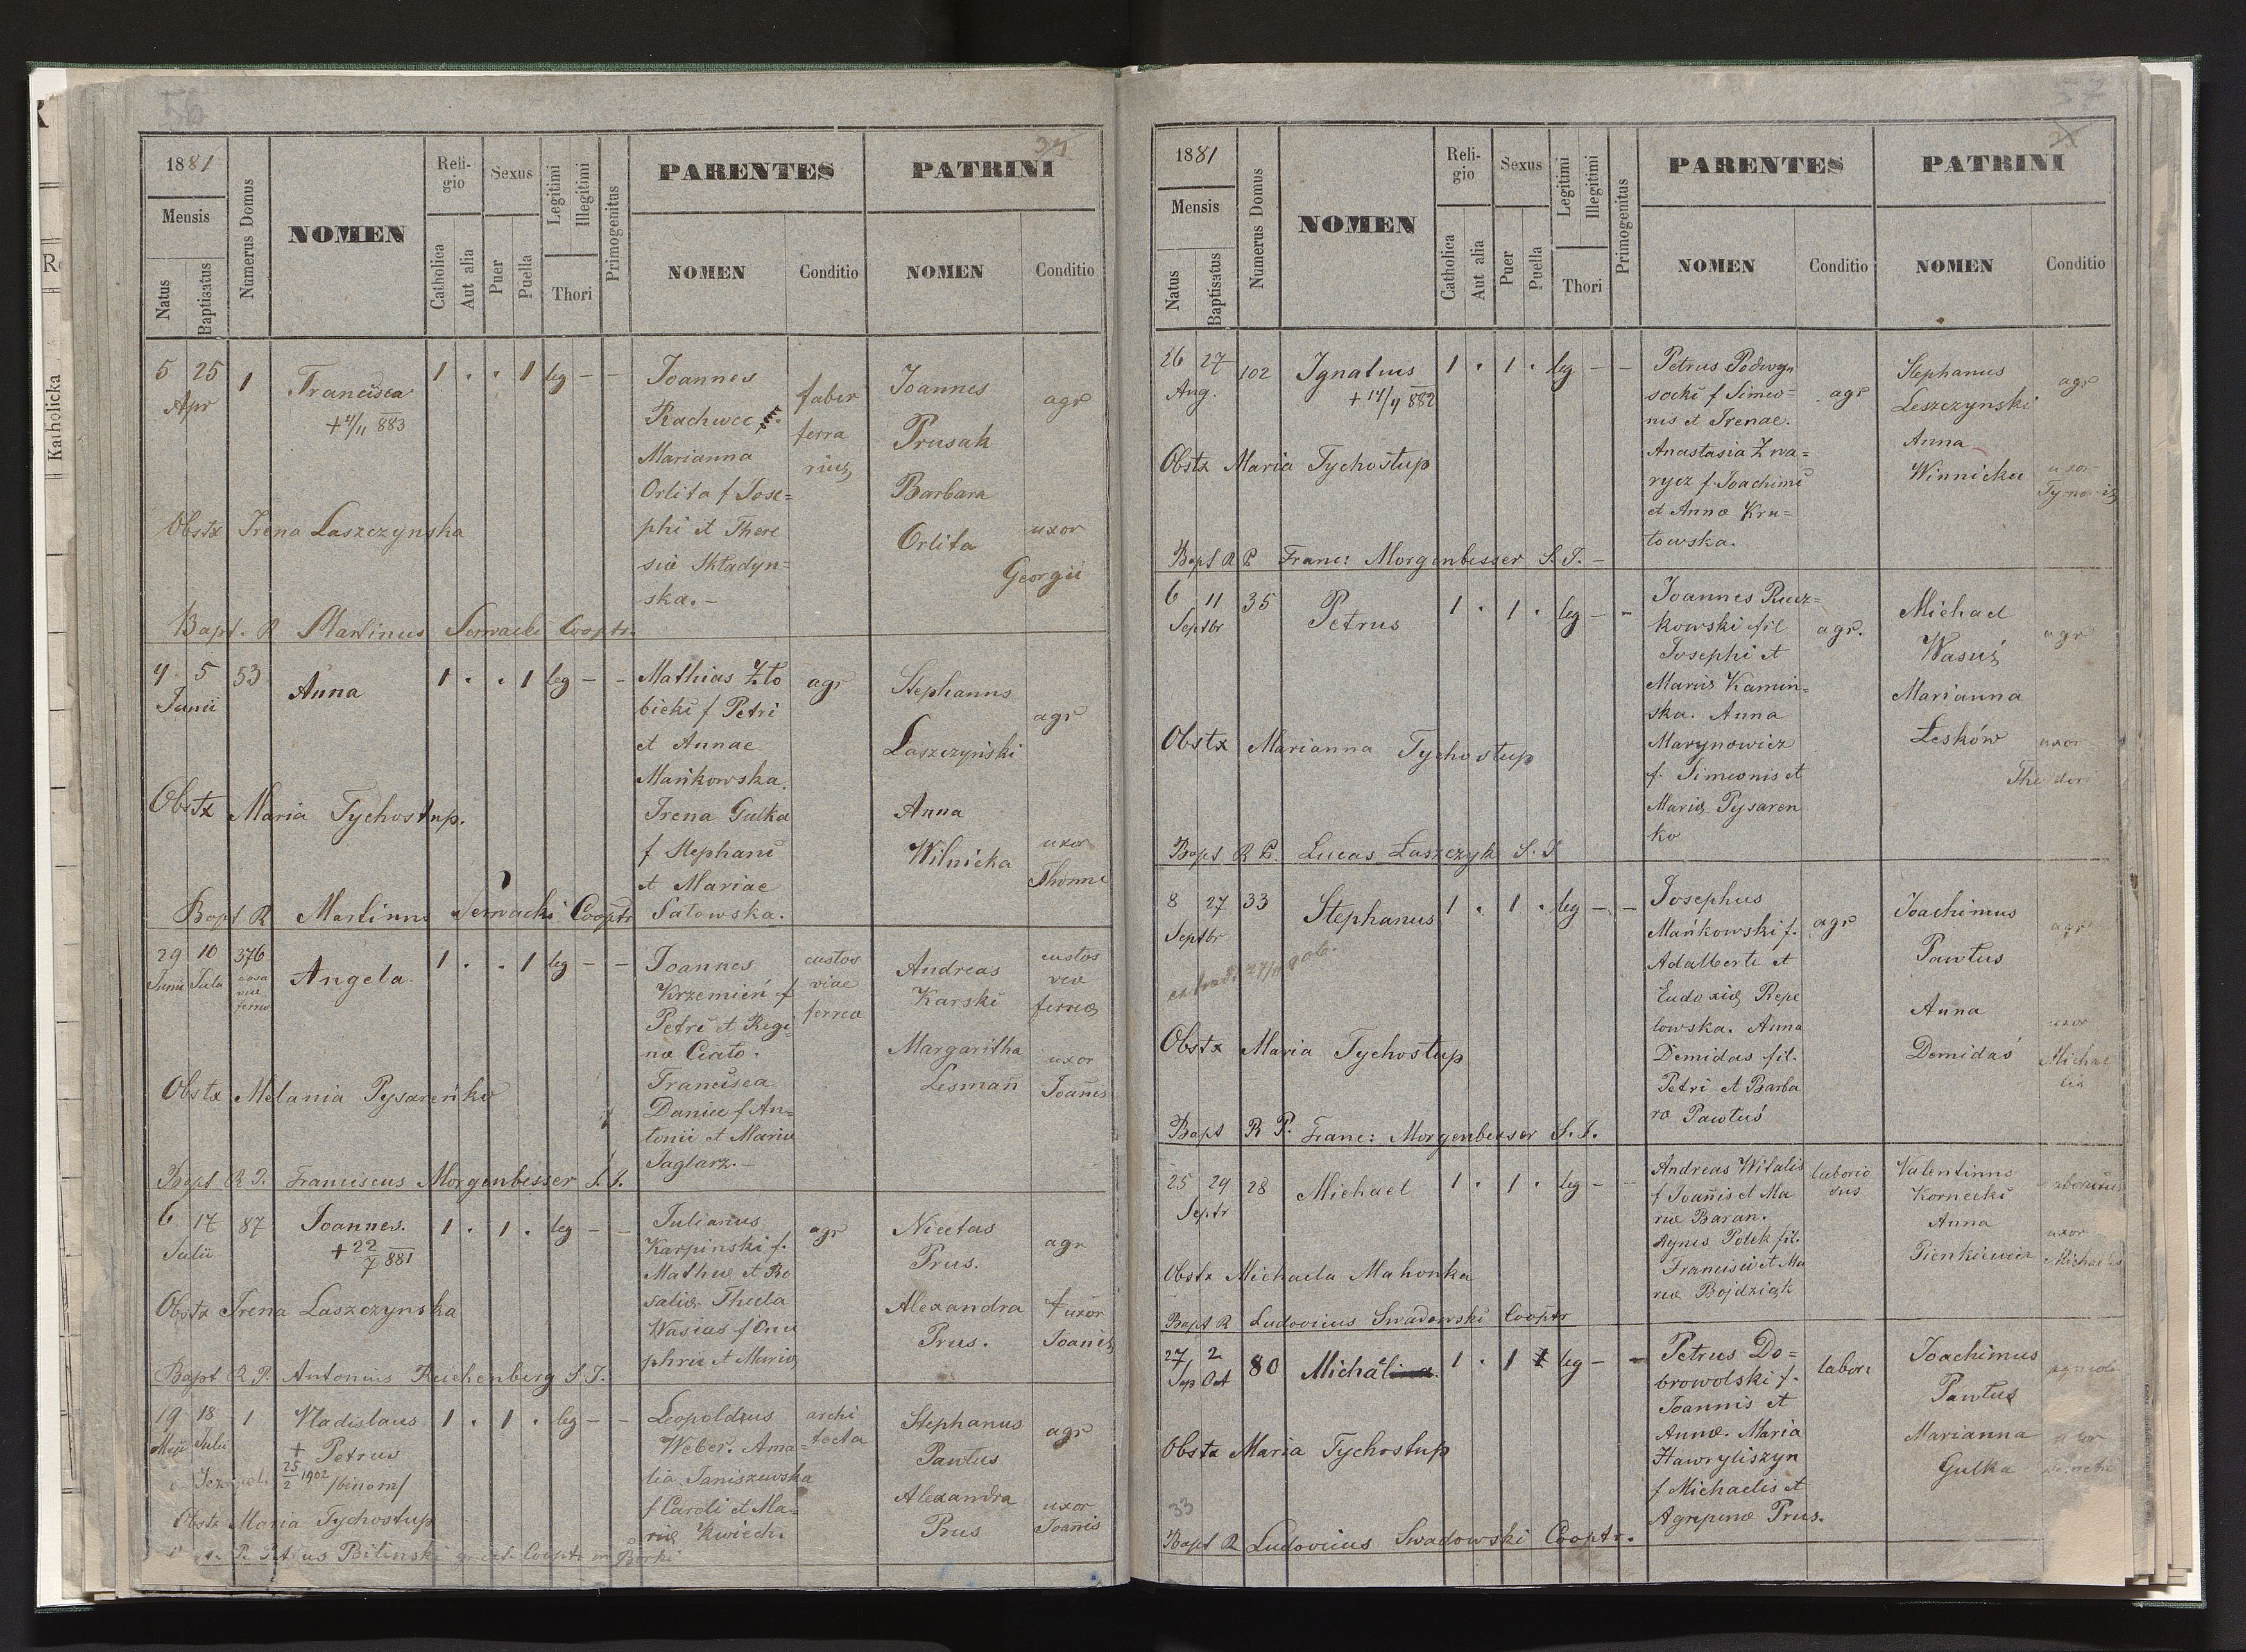 56
37
1881
Mensis
Natus
Baptisatus
Numerus Domus
NOMEN
Reli-
gio
Catholica
Aut alia
Sexus
Puer
Puella
Legitimi
Illegitimi
Thori
Primogenitus
PARENTES
NOMEN
Conditio
PATRINI
NOMEN
Conditio
5 25
Apr
1
Francisca
+ 4/11 883
1 . . 1 leg - -
Joannes
Marianna
Orlita f Jose=
phi et There
siæ Skladyn=
ska.-
faber
ferra
rius
Joannes
Prusak
agr
Barbara
Orlita
uxor
Georgii
Obstx Irena Laszczynska
Bapt. R Martinus Serwacki Cooptr.
4 5
Junii
53
Anna
1 . . 1 leg - -
Mathias Zło
bicki f Petri
et Annae
Mańkowska.
Irena Gulka
f Stephani
et Mariae
Satowska.
agr
Stephanus
Laszczyński
agr
Anna
Wilnicka
uxor
Thomæ
Obstx Maria Tychostup.
Bapt R Martinus Serwacki Cooptr
29 10
Junii Julii
376
casa
viæ
ferreæ
Angela
1 . . 1 leg - -
Joannes
Krzemień f
Petri et Regi
næ Ciato.
Francisca
Daniec f An=
tonii et Mariæ
Jaglarz.-
custos
viae
ferreæ
Andreas
Karski
custos
viæ
ferreæ
Margaritha
Lesmañ
uxor
Joañis
Obstx Melania Pysareńko
Bapt R P. Franciscus Morgenbesser S. J.
6 17
Julii
87
Joannes.
+ 22/7 881
1 . 1 . leg - -
Julianus
Karpinski f.
Mathiæ et Ro
saliæ. Thecla
Wasias f Onu
phrii et Mariæ
agr
Nicetas
Prus.
agr
Alexandra
Prus.
uxor
Joanis
Obstx Irena Laszczynska
Bapt R P. Antonius Reichenberg S. J.
19 18
Maji Julii
1
Vladislaus
Petrus
+ 25/2 1902 /binom/
1 . 1 . leg - -
Leopoldus
Weber. Ama=
lia Janiszewska
f Caroli et Ma=
riæ Kwiech.
archi
tecta
Stephanus
Pawtus
agr
Alexandra
Prus
uxor
Joañis
Obstx Maria Tychostup
Petrus Bilinski Cooptr
57
1881
Mensis
Natus
Baptisatus
Numerus Domus
NOMEN
Reli-
gio
Catholica
Aut alia
Sexus
Puer
Puella
Legitimi
Illegitimi
Thori
Primogenitus
PARENTES
NOMEN
Conditio
PATRINI
NOMEN
Conditio
26 27
Aug.
102
Ignatius
+ 14/4 882
1 . 1 . leg - -
Petrus Podwyn
socki f Simeo=
nis et Irenae.
Anastasia Zwa=
rycz f. Joachimi
et Annæ Kru=
towska.
agr
Stephanus
Leszczynski
agr
Anna
Winnicka
uxor
Obstx Maria Tychostup
Bapt R P Franc: Morgenbesser S. J. -
6 11
Septbr
35
Petrus
1 . 1 . leg - -
Joannes Rucz=
kowski fil
Josephi et
Mariæ Kamin=
ska. Anna
Marynowicz
f. Simeonis et
Mariæ Pysaren
ko
agr.
Michael
Wasuś
agr
Marianna
Leskow
uxor
Obstx Marianna Tychostup
Bapt R P. Lucas Laszczyk S. J
8 27
Septbr
33
Stephanus
1 . 1 . leg - -
Josephus
Mańkowski f.
Adalberti et
Eudoxiæ Repe
lowska. Anna
Demidas fil.
Petri et Barba
ræ Pawtuś
agr
Joachimus
Pawtus
agr
Anna
Demidaś
uxor
Michae
lis
Obstx Maria Tychostup
Bapt R P. Franc: Morgenbesser S. J.
25 29
Septr
28
Michael
1 . 1 . leg - -
Andreas Witalis
f Joañis et Ma
riæ Baran.
Agnes Polek fil.
Francisci et Ma
riæ Bojdziak
laborio
sus
Valentinus
Kornecki
Anna
Pienkiewicz
uxor
Michaelis
Obstx Michaela Mahonka
Bapt R Ludovicus Swadowski Cooptr
27 2
Sep Oct
80
Michael
1 . 1 leg - -
Petrus Do=
browolski f.
Joannis et
Annæ. Maria
Hawryliszyn
f Michaelis et
Agripinæ Prus.
labori
Joachimus
Pawtus
Marianna
Gulka
uxor
Obstx Maria Tychostup
33
Bapt R Ludovicus Swadowski Cooptr.
Katholicka